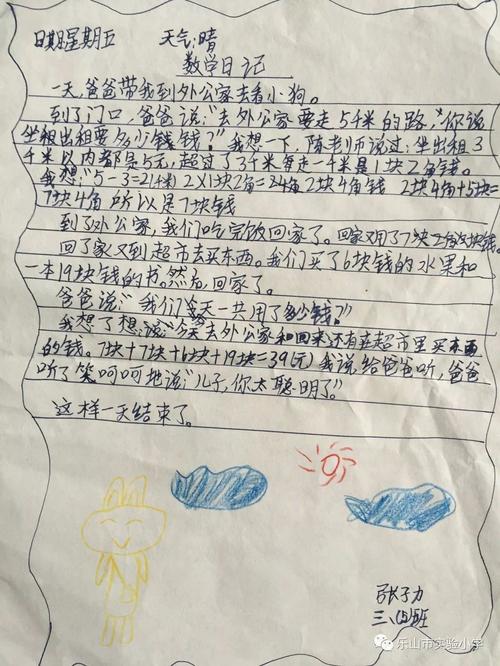 日期:星期五 天气:晴
数学日记
一天,爸爸带我到外公家去看小狗。
到了门口,爸爸说:“去外公家要走5千米的路。”你说
坐租出租要多少钱钱?”我想一下,陈老师说过:坐出租3
千米以内都是5元,超过了3千米每走一千米是1块2角钱。
我想:“5-3=2(千米) 2×1块2角=24角 2块4角钱 2块4角+5块=
7块4角 所以是7块钱
到了外公家,我们吃完饭回家了。回家又用了7块
回了家又到超市去买东西。我们买了6块钱的水果和
一本19块钱的书。然后,回家了。
爸爸说:“我们今天一共用了多少钱?”
我想了想,说:“今天去外公家和回来还有在超市里买东西
的钱。7块+7块+6块+19块=39(元)我说给爸爸听,爸爸
听了笑呵呵地说:“儿子,你太聪明了。”
这样一天结束了。
张子力
三、四班
乐山市实验小学